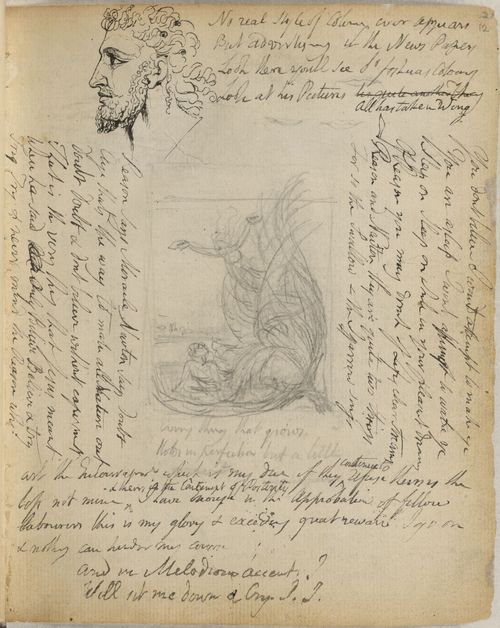 No real Style of Colouring ever appears
But advertising in the News Papers
Look there youll see Sr Joshuas Colouring
Look at his Pictures tis quite another Thing
All has taken Wing
You dont believe I wont attempt to make ye
You are asleep I wont attempt to wake ye
Sleep on Sleep on while in your pleasant dreams
Of Reason you may drink of Lifes clear streams
Reason and Newton they are quite two things
For so the Swallow & the Sparrow sings
Reason says Miracle Newton says Doubt
Aye thats the way to make all Nature out
Doubt Doubt & dont believe without experiment
That is the very thing that Jesus meant
When he said Only Believe Believe & try
Try Try & never mind the Reason why
Every thing that grows
Holds in perfection but a little
the Encouragement which is my due if they continue to refuse theirs is the
loss not mine & theirs is the Contempt of Posterity I have Enough in the Approbation of fellow
labourers this is my glory & exceeding great reward I go on
& nothing can hinder my course
and in Melodious accents I
Will sit me down & Cry. I. I.